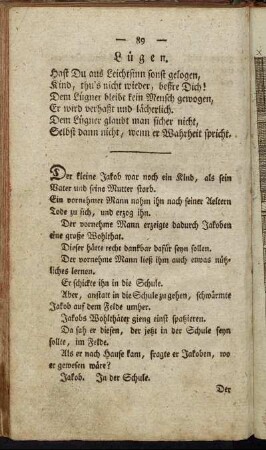 — 89 —
Lügen.
Hast Du aus Leichtsinn sonst gelogen,
Kind, thu's nicht wieder, beßre Dich!
Dem Lügner bleibt kein Mensch gewogen,
Er wird verhaßt und lächerlich.
Dem Lügner glaubt man sicher nicht,
Selbst dann nicht, wenn er Wahrheit spricht.
Der kleine Jakob war noch ein Kind, als sein
Vater und seine Mutter starb.
Ein vornehmer Mann nahm ihn nach seiner Aeltern
Tode zu sich, und erzog ihn.
Der vornehme Mann erzeigte dadurch Jakoben
eine große Wohlthat.
Dieser hätte recht dankbar dafür seyn sollen.
Der vornehme Mann ließ ihm auch etwas nütz-
liches lernen.
Er schickte ihn in die Schule.
Aber, anstatt in die Schule zu gehen, schwärmte
Jakob auf dem Felde umher.
Jakobs Wohlthäter gieng einst spatzieren.
Da sah er diesen, der jetzt in der Schule seyn
sollte, im Felde.
Als er nach Hause kam, fragte er Jakoben, wo
er gewesen wäre?
Jakob. In der Schule.
Der